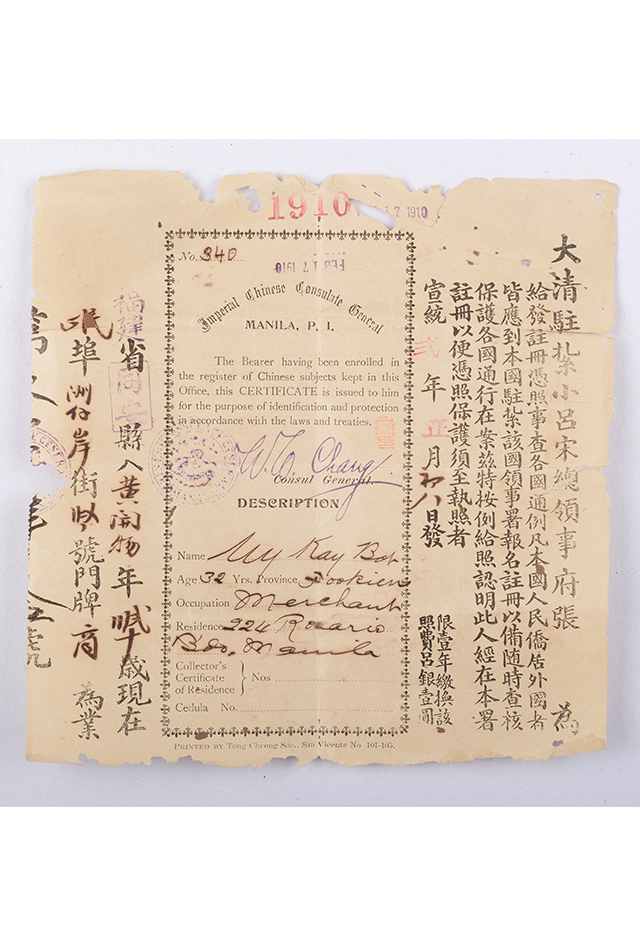 1910
7 1910
No. 340
FEB 17 1910
Imperial Chinese Consulate General
MANILA, P. I.
The Bearer having been enrolled in
the register of Chinese subjects kept in this
Office, this CERTIFICATE is issued to him
for the purpose of identification and protection
in accordance with the laws and treaties.
Consul General.
DESCRIPTION
Name Uy Kay Bot
Age 32 Yrs. Province Fookien
Occupation Merchant
Residence 224 Rosario
Bdo, Manila
Collector's
Certificate
of Residence
Nos
Cedula No.
PRINTED BY Tong Cheong Sons, San Vicente No 101-105.
大清駐紮小呂宋總領事府張 為
給發註冊憑照事查各國通例凡本國人民僑居外國者
皆應到本國駐紮該國領事署報名註冊以備隨時查核
保護各國通行在案茲特按例給照認明此人經在本署
註冊以便憑照保護須至執照者
宣統 弍 年 正 月 初八 日發
限壹年繳換該
照費呂銀壹圓
福建省 縣人黃開物年 歲現在
埠洲仔岸街 號門牌 商 為業